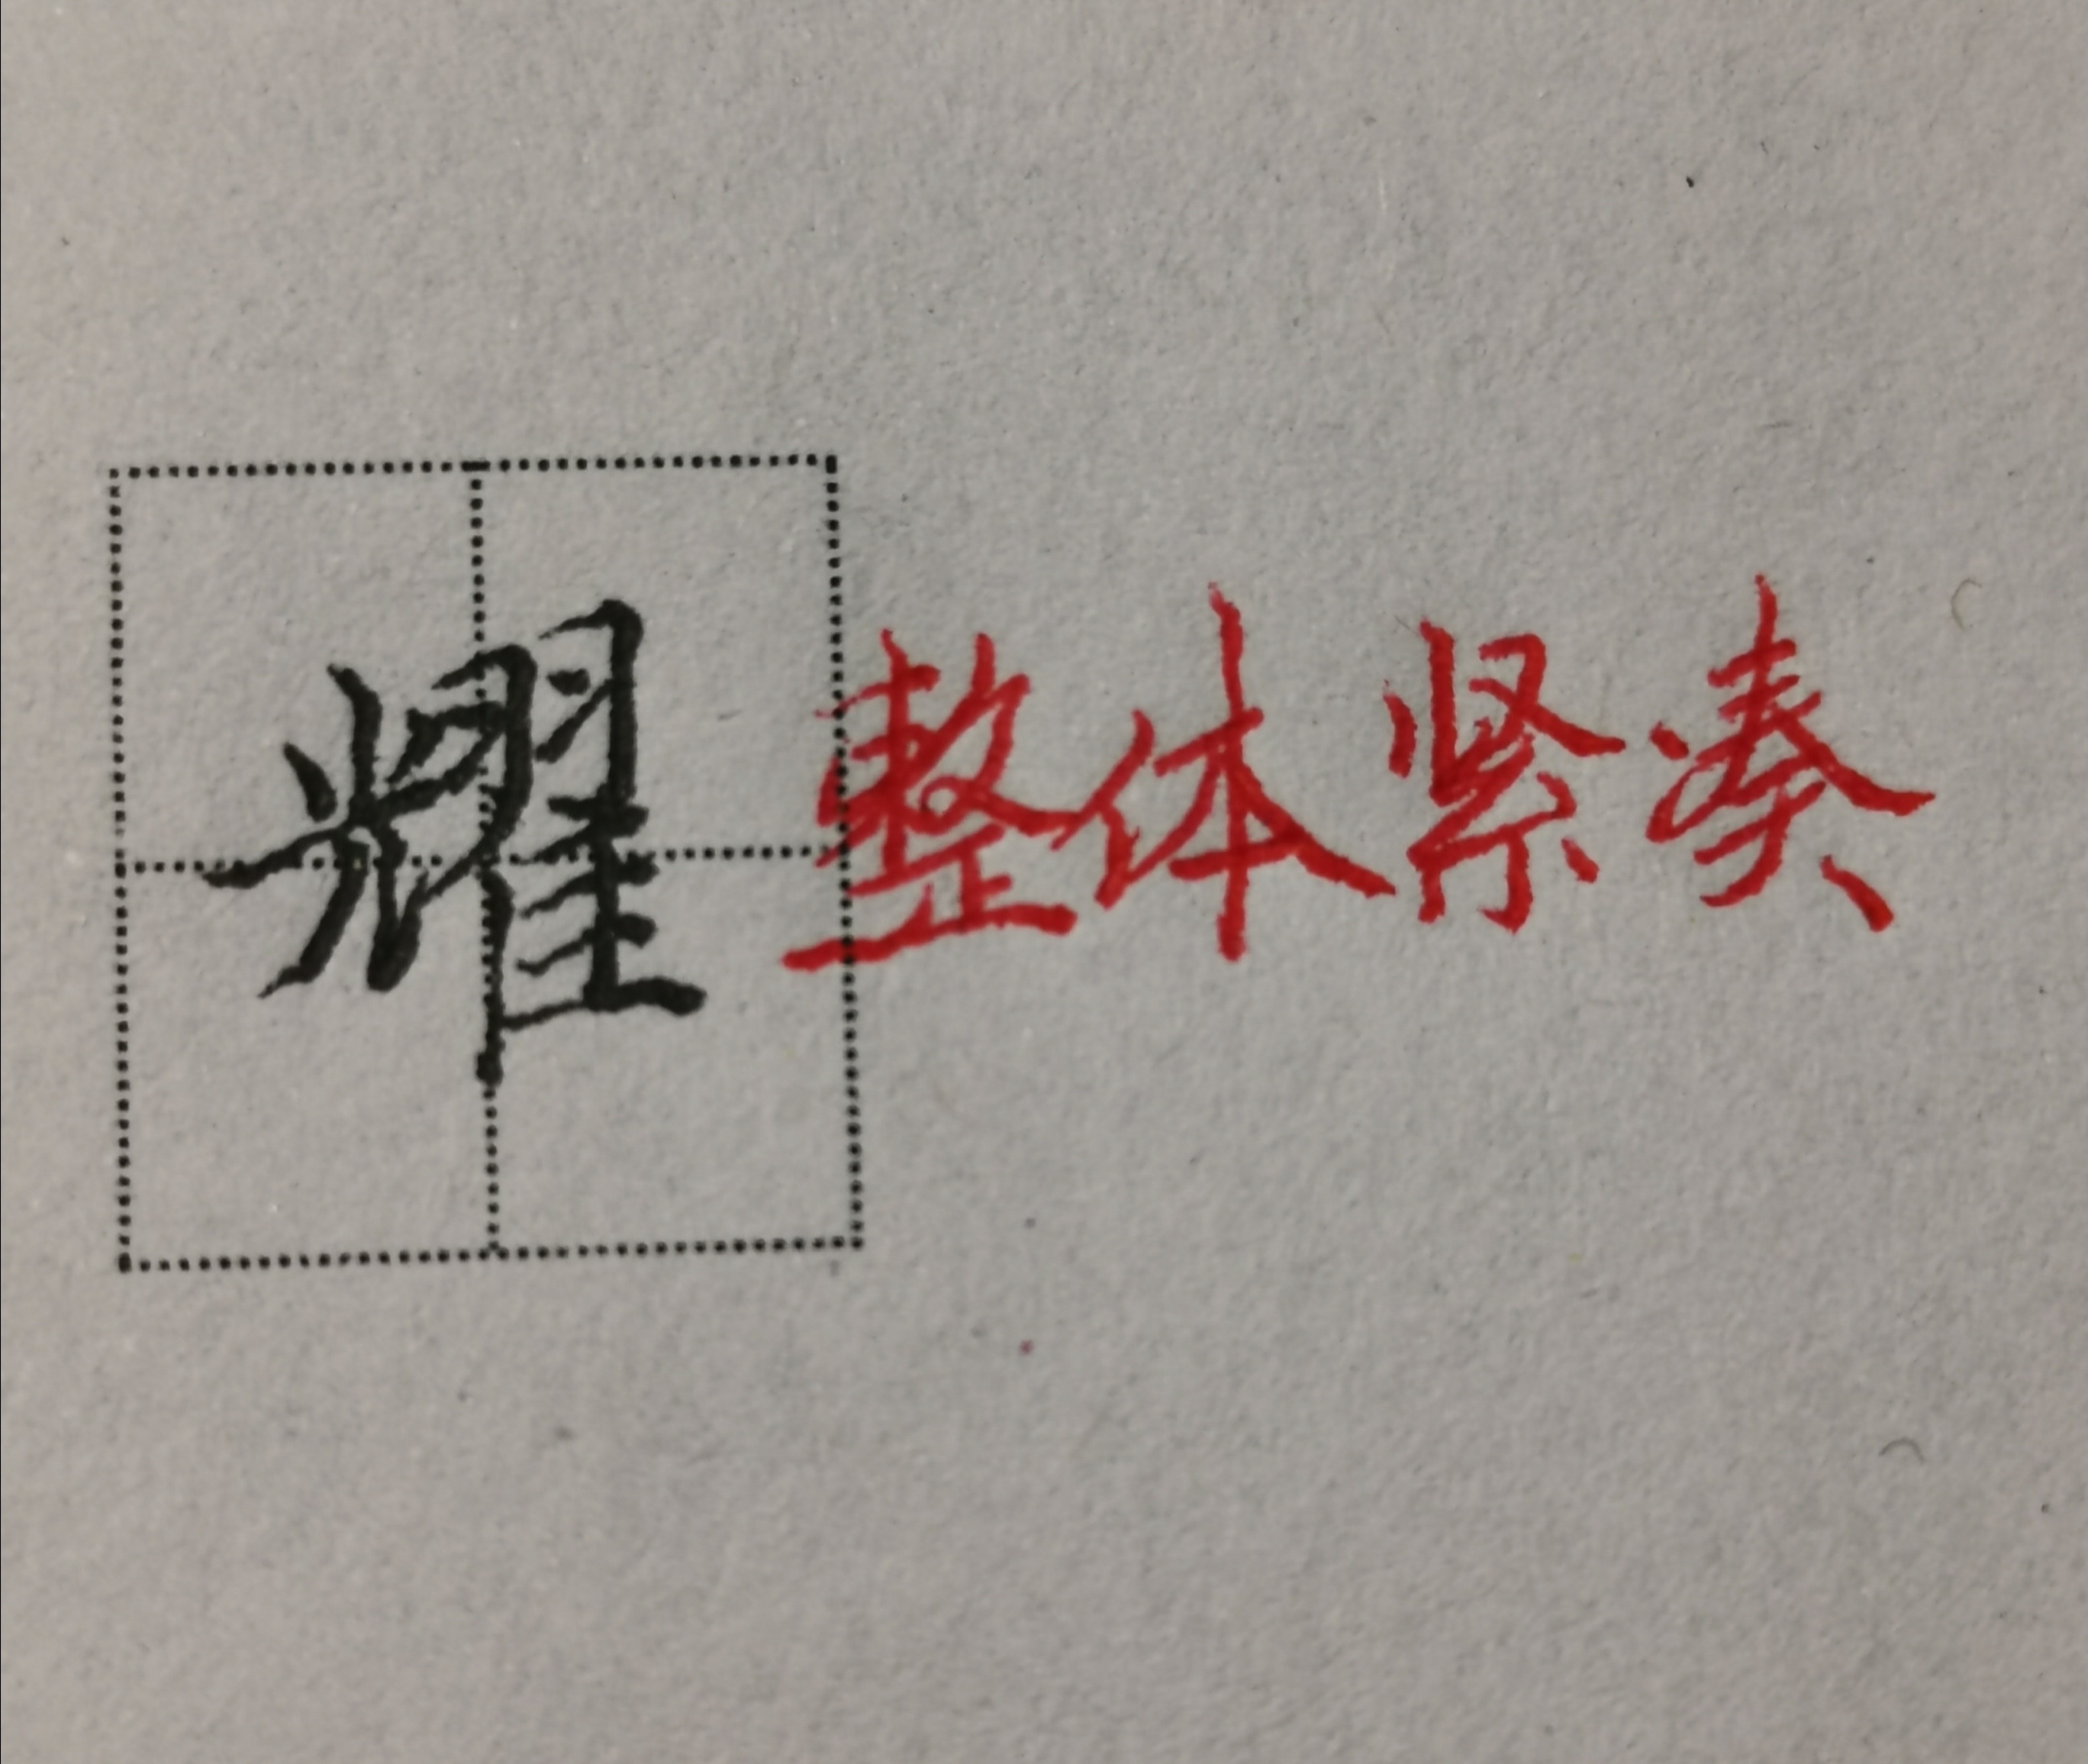 耀 整体紧凑